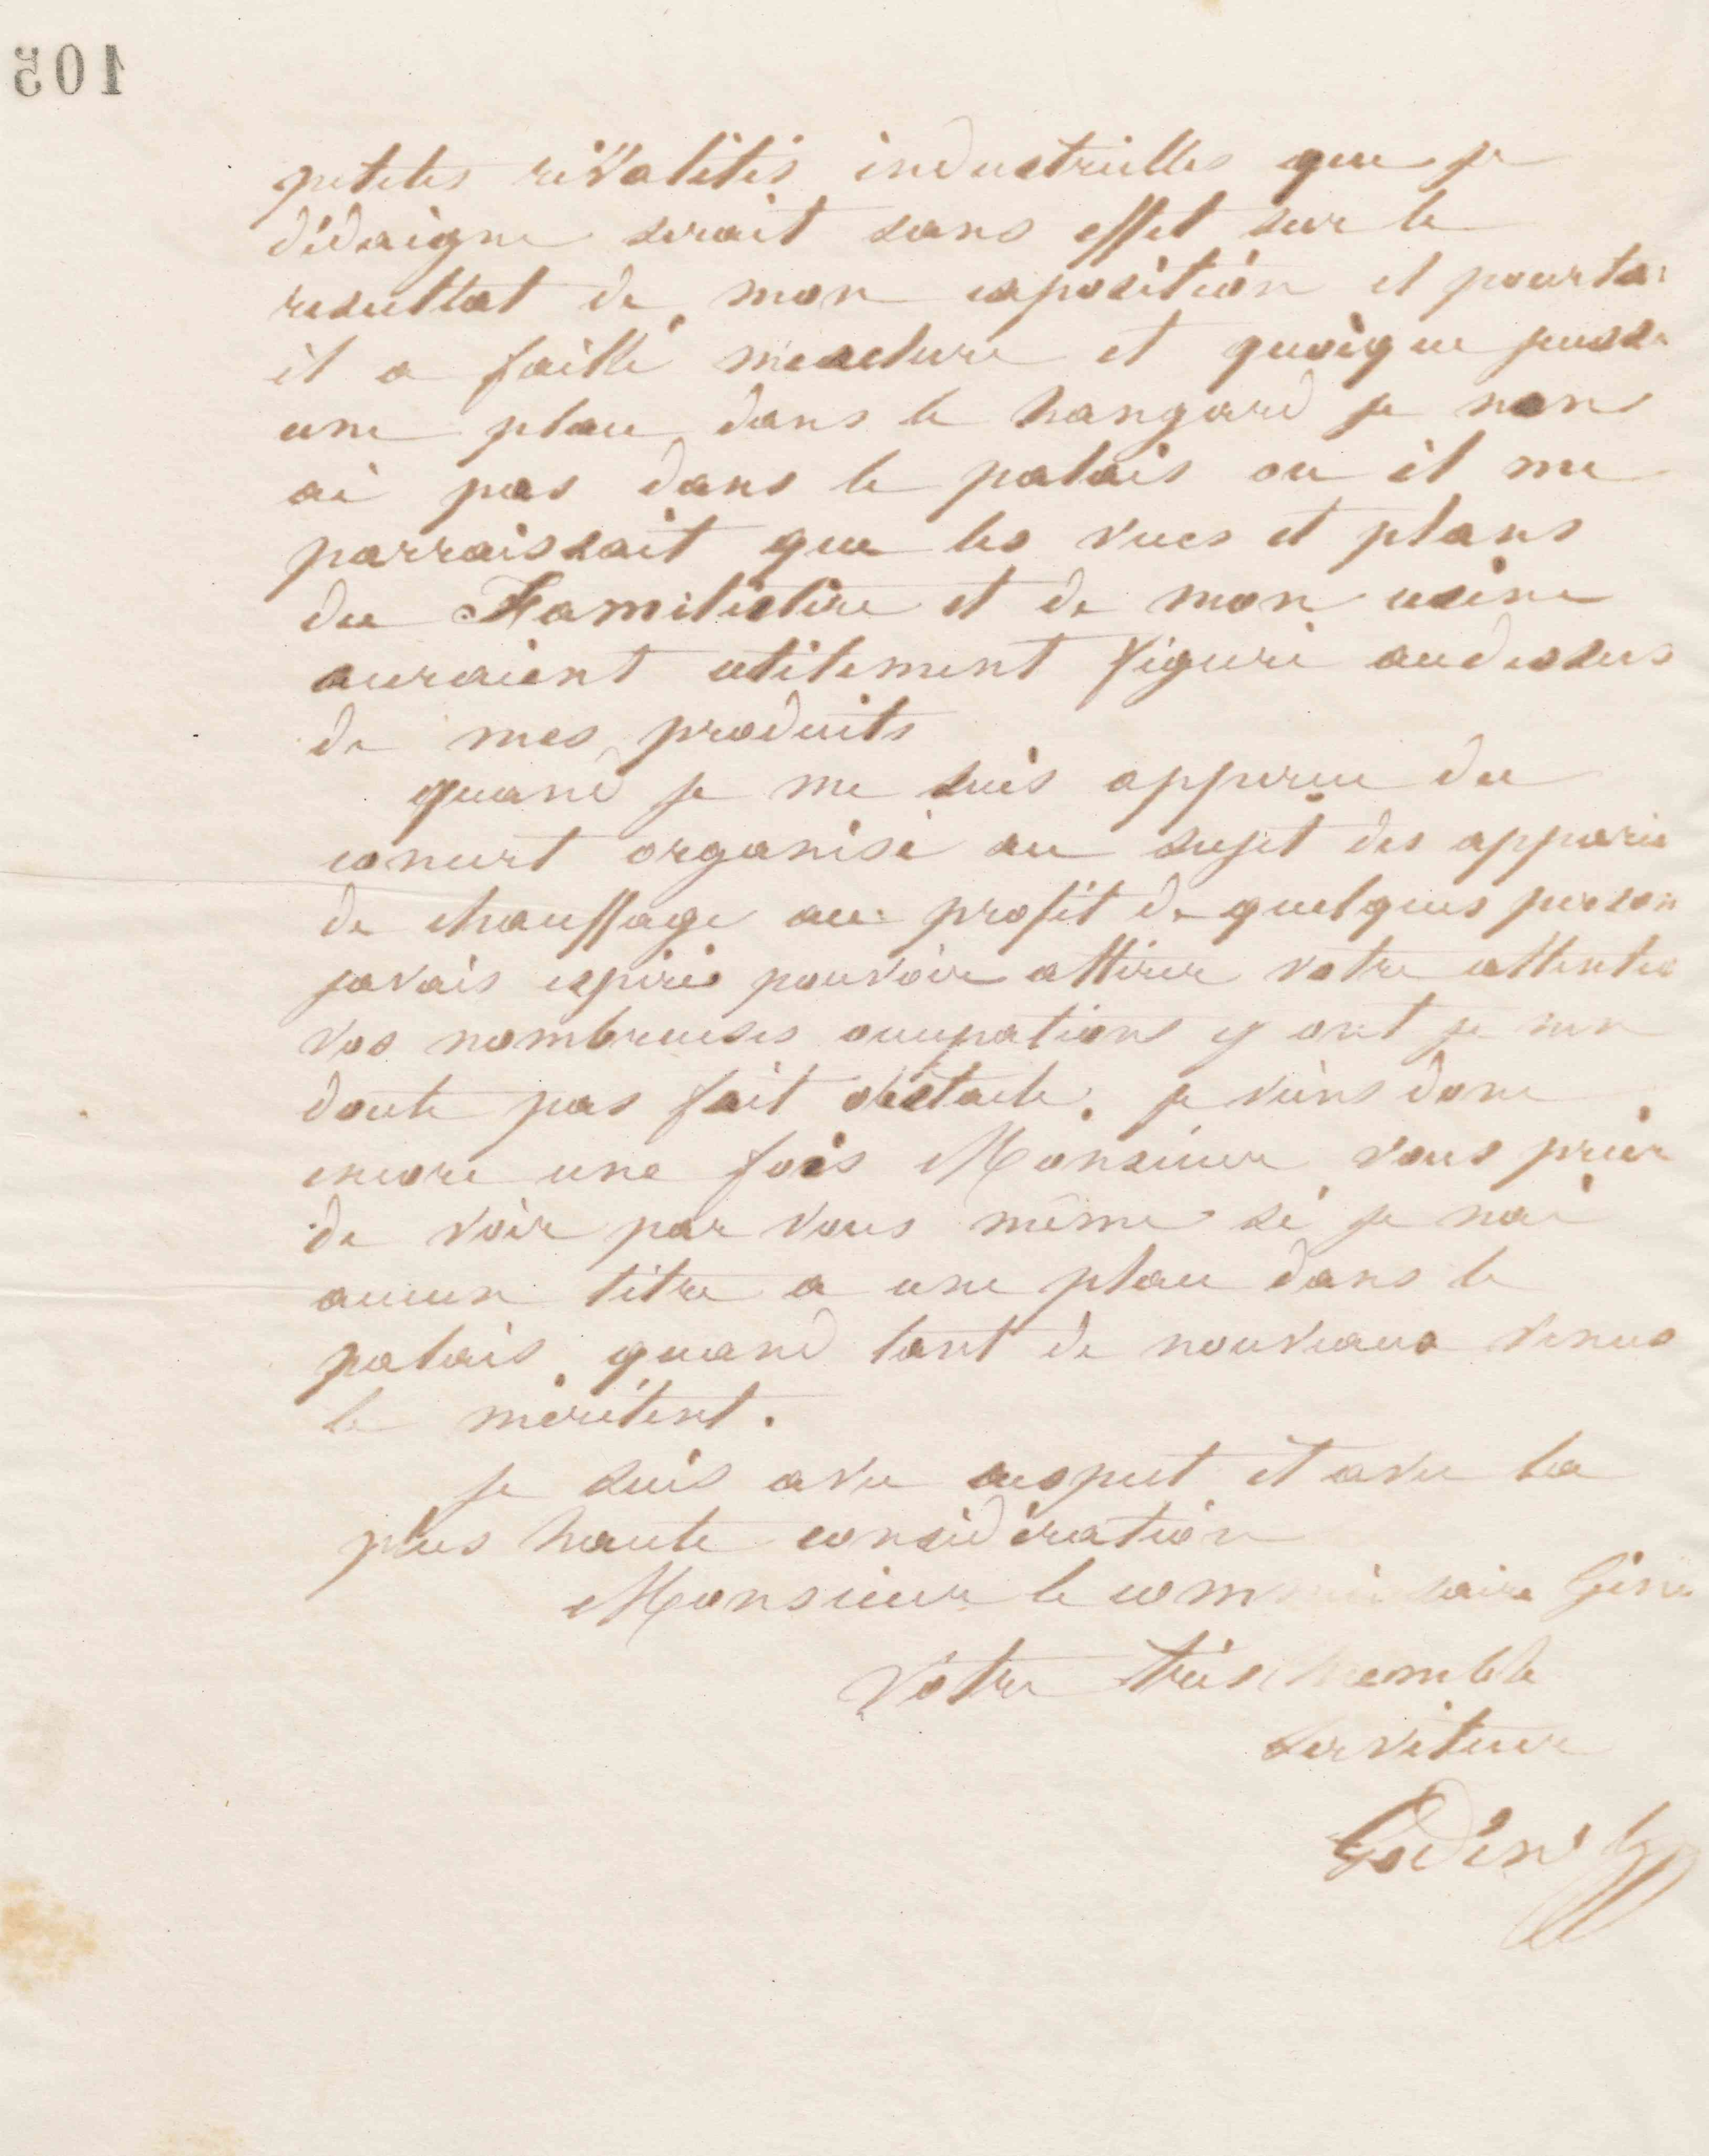 105
petites rivalités industrielles que je
dédaigne serait sans effet sur le
resultat de mon exposition et pourta
il a failli mexclure et quoique jusse
une place dans le hangard je nen
ai pas dans le palais ou il me
parraissait que les vues et plans
du Familistère et de mon usine
auraient utilement figuré audessus
de mes produits
quand je me suis apperçu du
concert organisé au sujet des appareis
de chauffage au profit de quelques person
javais espéré pouvoir attirer votre attentio
vos nombreuses occupations y ont je nen
doute pas fait obstacle. je viens donc
encore une fois Monsieur vous prier
de voir par vous même si je nai
aucun titre a une place dans le
palais quand tant de nouveaux venus
le méritent.
je suis avec respect et avec la
plus haute considération
Monsieur le commissaire Géné
Votre très humble
serviteur
Godin